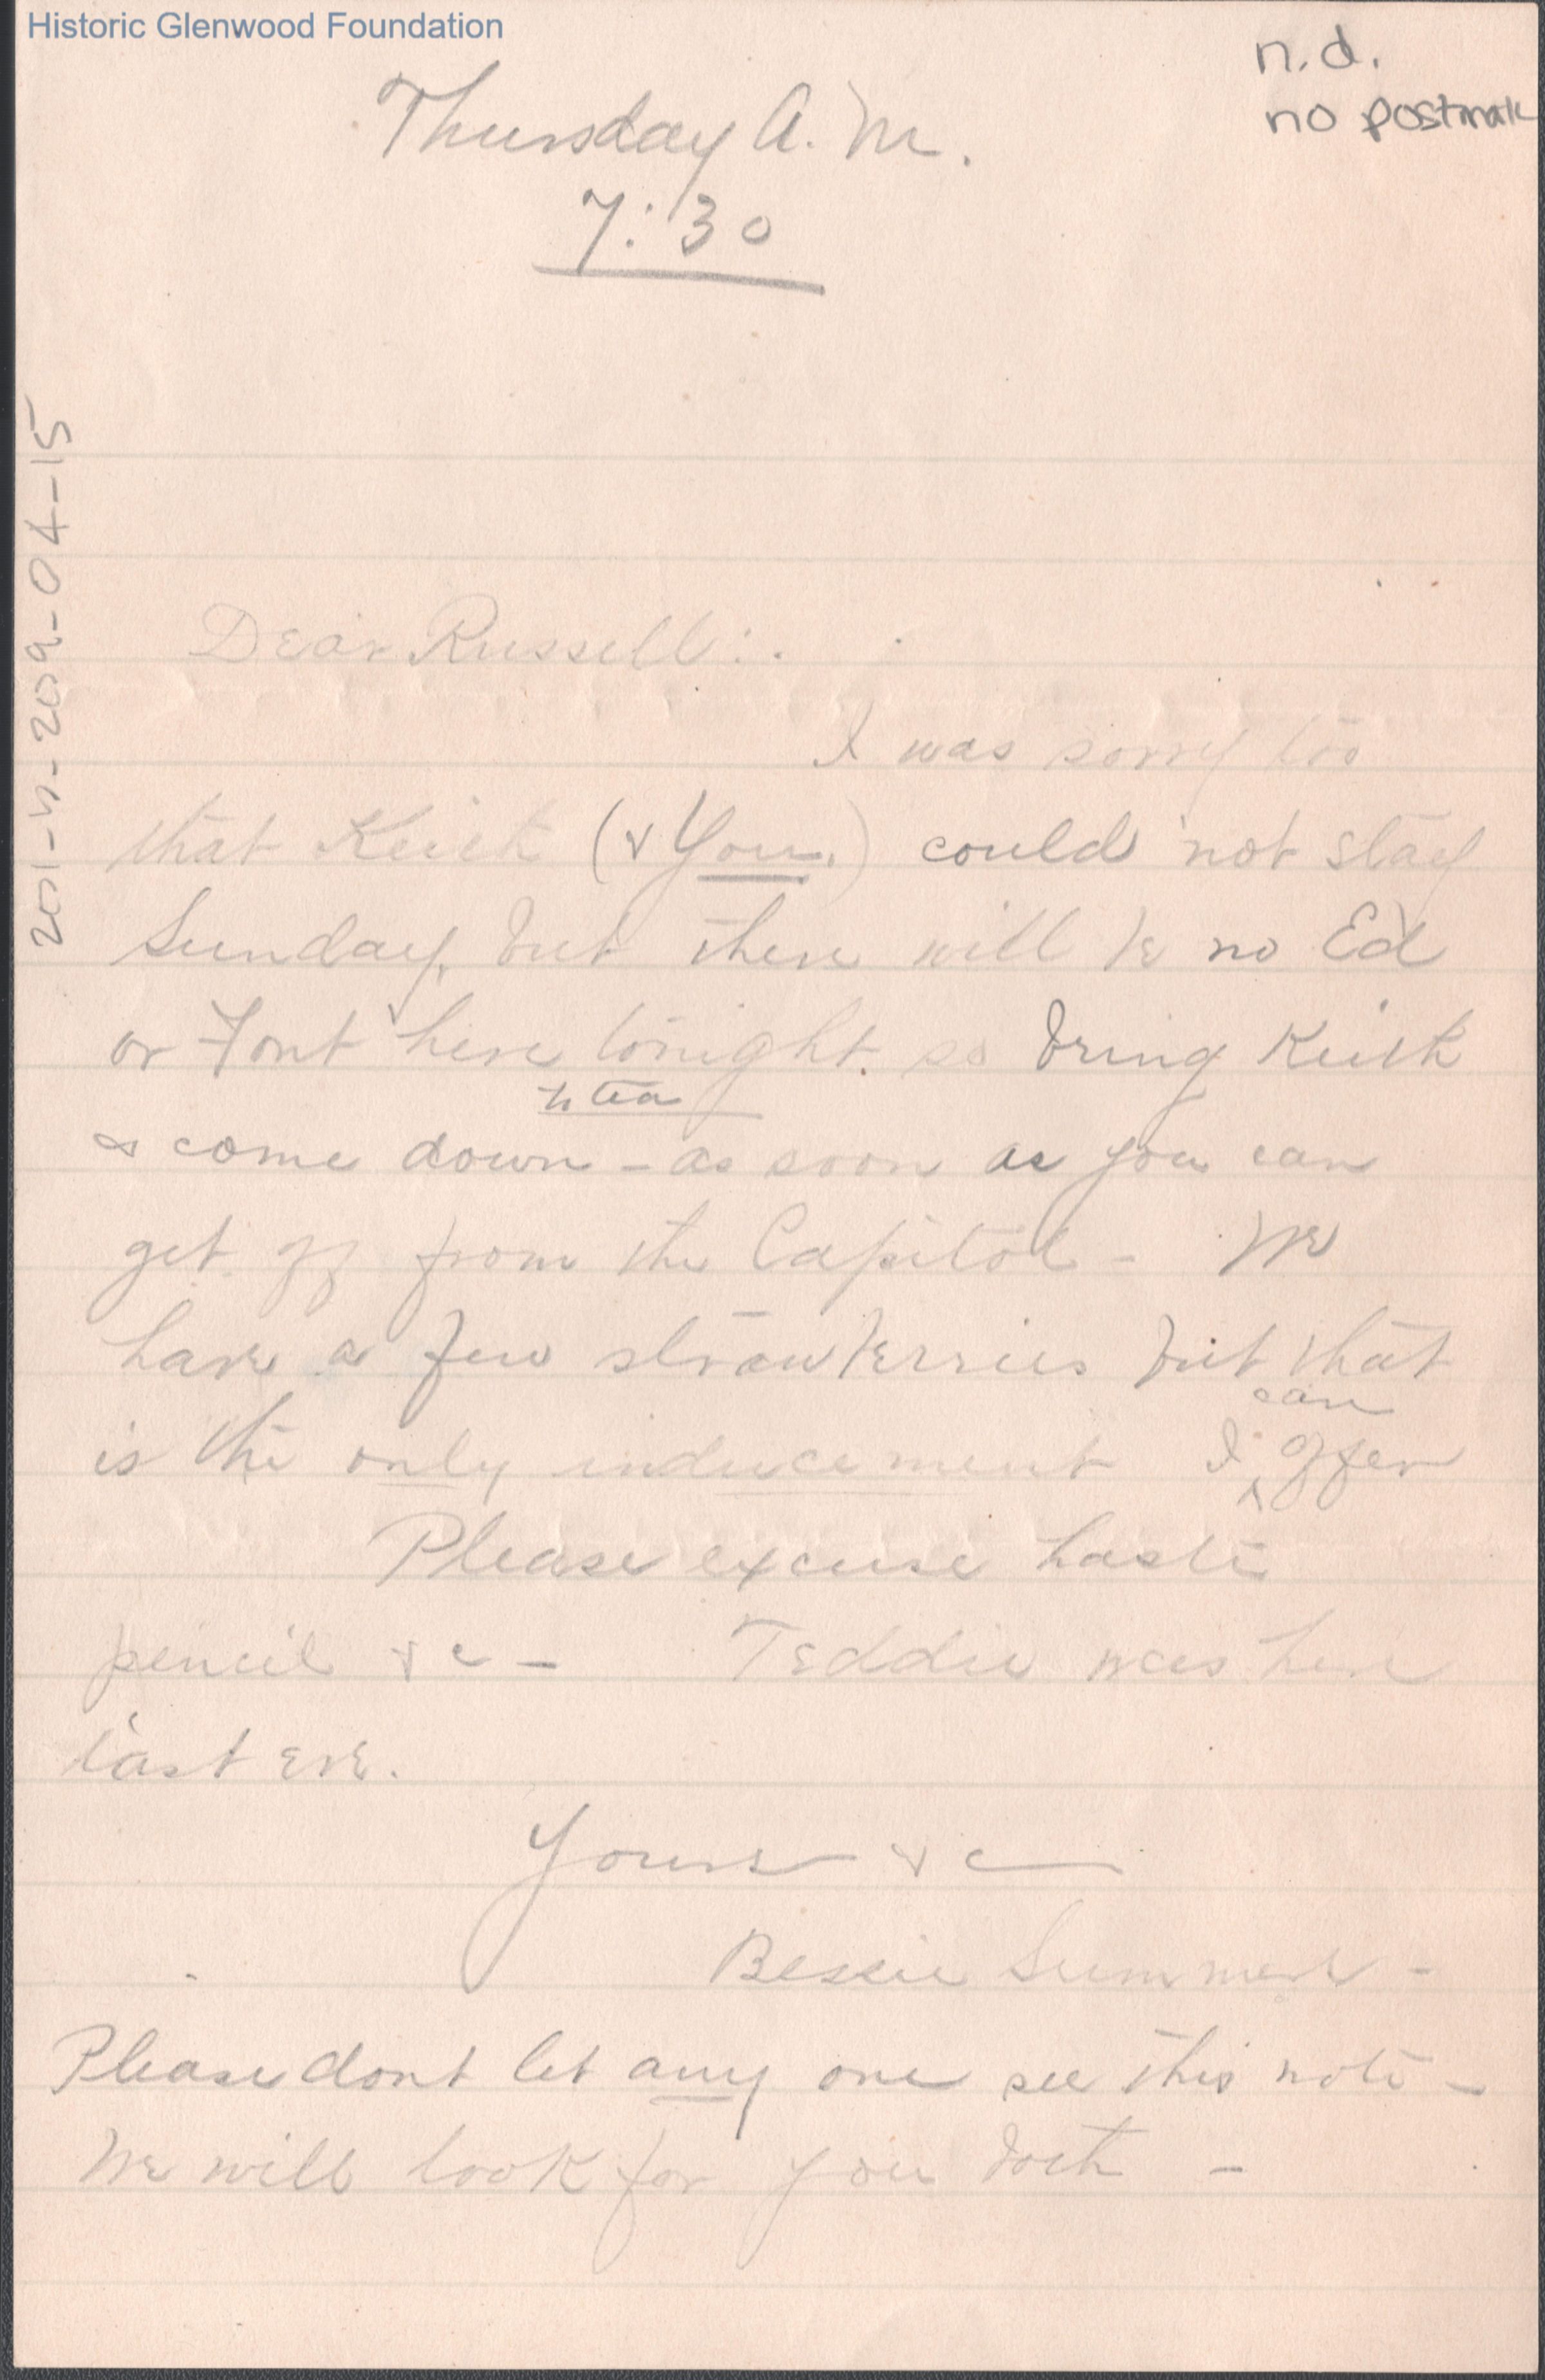 Historic Glenwood Foundation
n.d.
no postmark
Thursday A.M.
7:30
Dear Russell:.
I was sorry too
that Keith (& You.) could not stay
Sunday, but there will be no Ed
or Font here tonight. so bring Keith
to tea
& come down - as soon as you can
get off from the Capitol - We
have a few strawberries but that
can
is the only inducement I ^ offer
Please excuse haste
pencil &c - Teddie was here
last eve.
Yours &c
Bessie Summers -
Please dont let any one see this note -
We will look for you both -